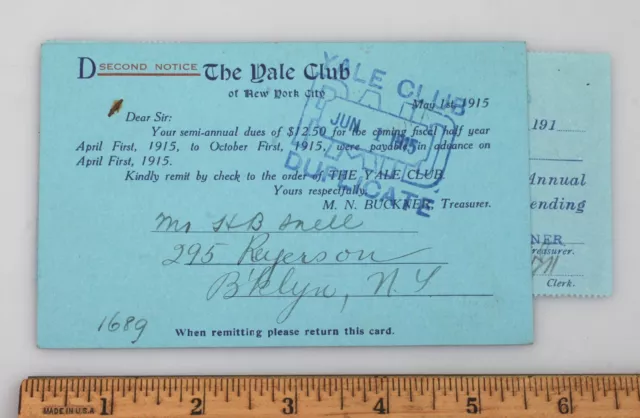 D SECOND NOTICE The Yale Club
of New York City
May 1st, 1915
Dear Sir:
Your semi-annual dues of $12.50 for the coming fiscal half year
April First, 1915, to October First, 1915, were payable in advance on
April First, 1915.
Kindly remit by check to the order of THE YALE CLUB.
Yours respectfully,
M. N. BUCKNER, Treasurer.
YALE CLUB
PAID
JUN 1915
DUPLICATE
Mr H B Snell
295 Ryerson
B'klyn, N.Y
1689
When remitting please return this card.
191
Annual
ending
NER
Treasurer.
Clerk.
1 2 3 4 5 6
MADE IN U.S.A